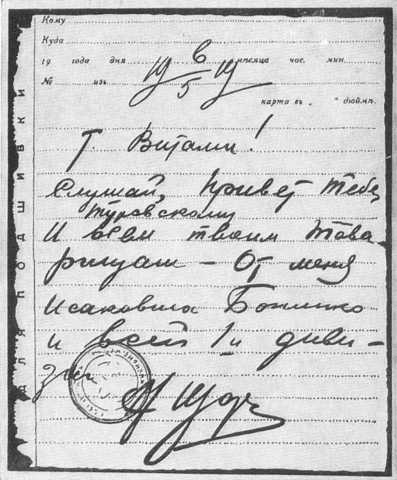 Кому
Куда
19 года дня месяца час. мин.
№ изъ
карта въ „ " дюйм.
19 6/5 19
Т Виталий!
Слушай, привет тебе,
Туровскому
и всем твоим това-
рищам – От меня
Исаковича Боженко
и всей 1й диви-
зии
Н Щорс
ДЛЯ ПОДШИВКИ